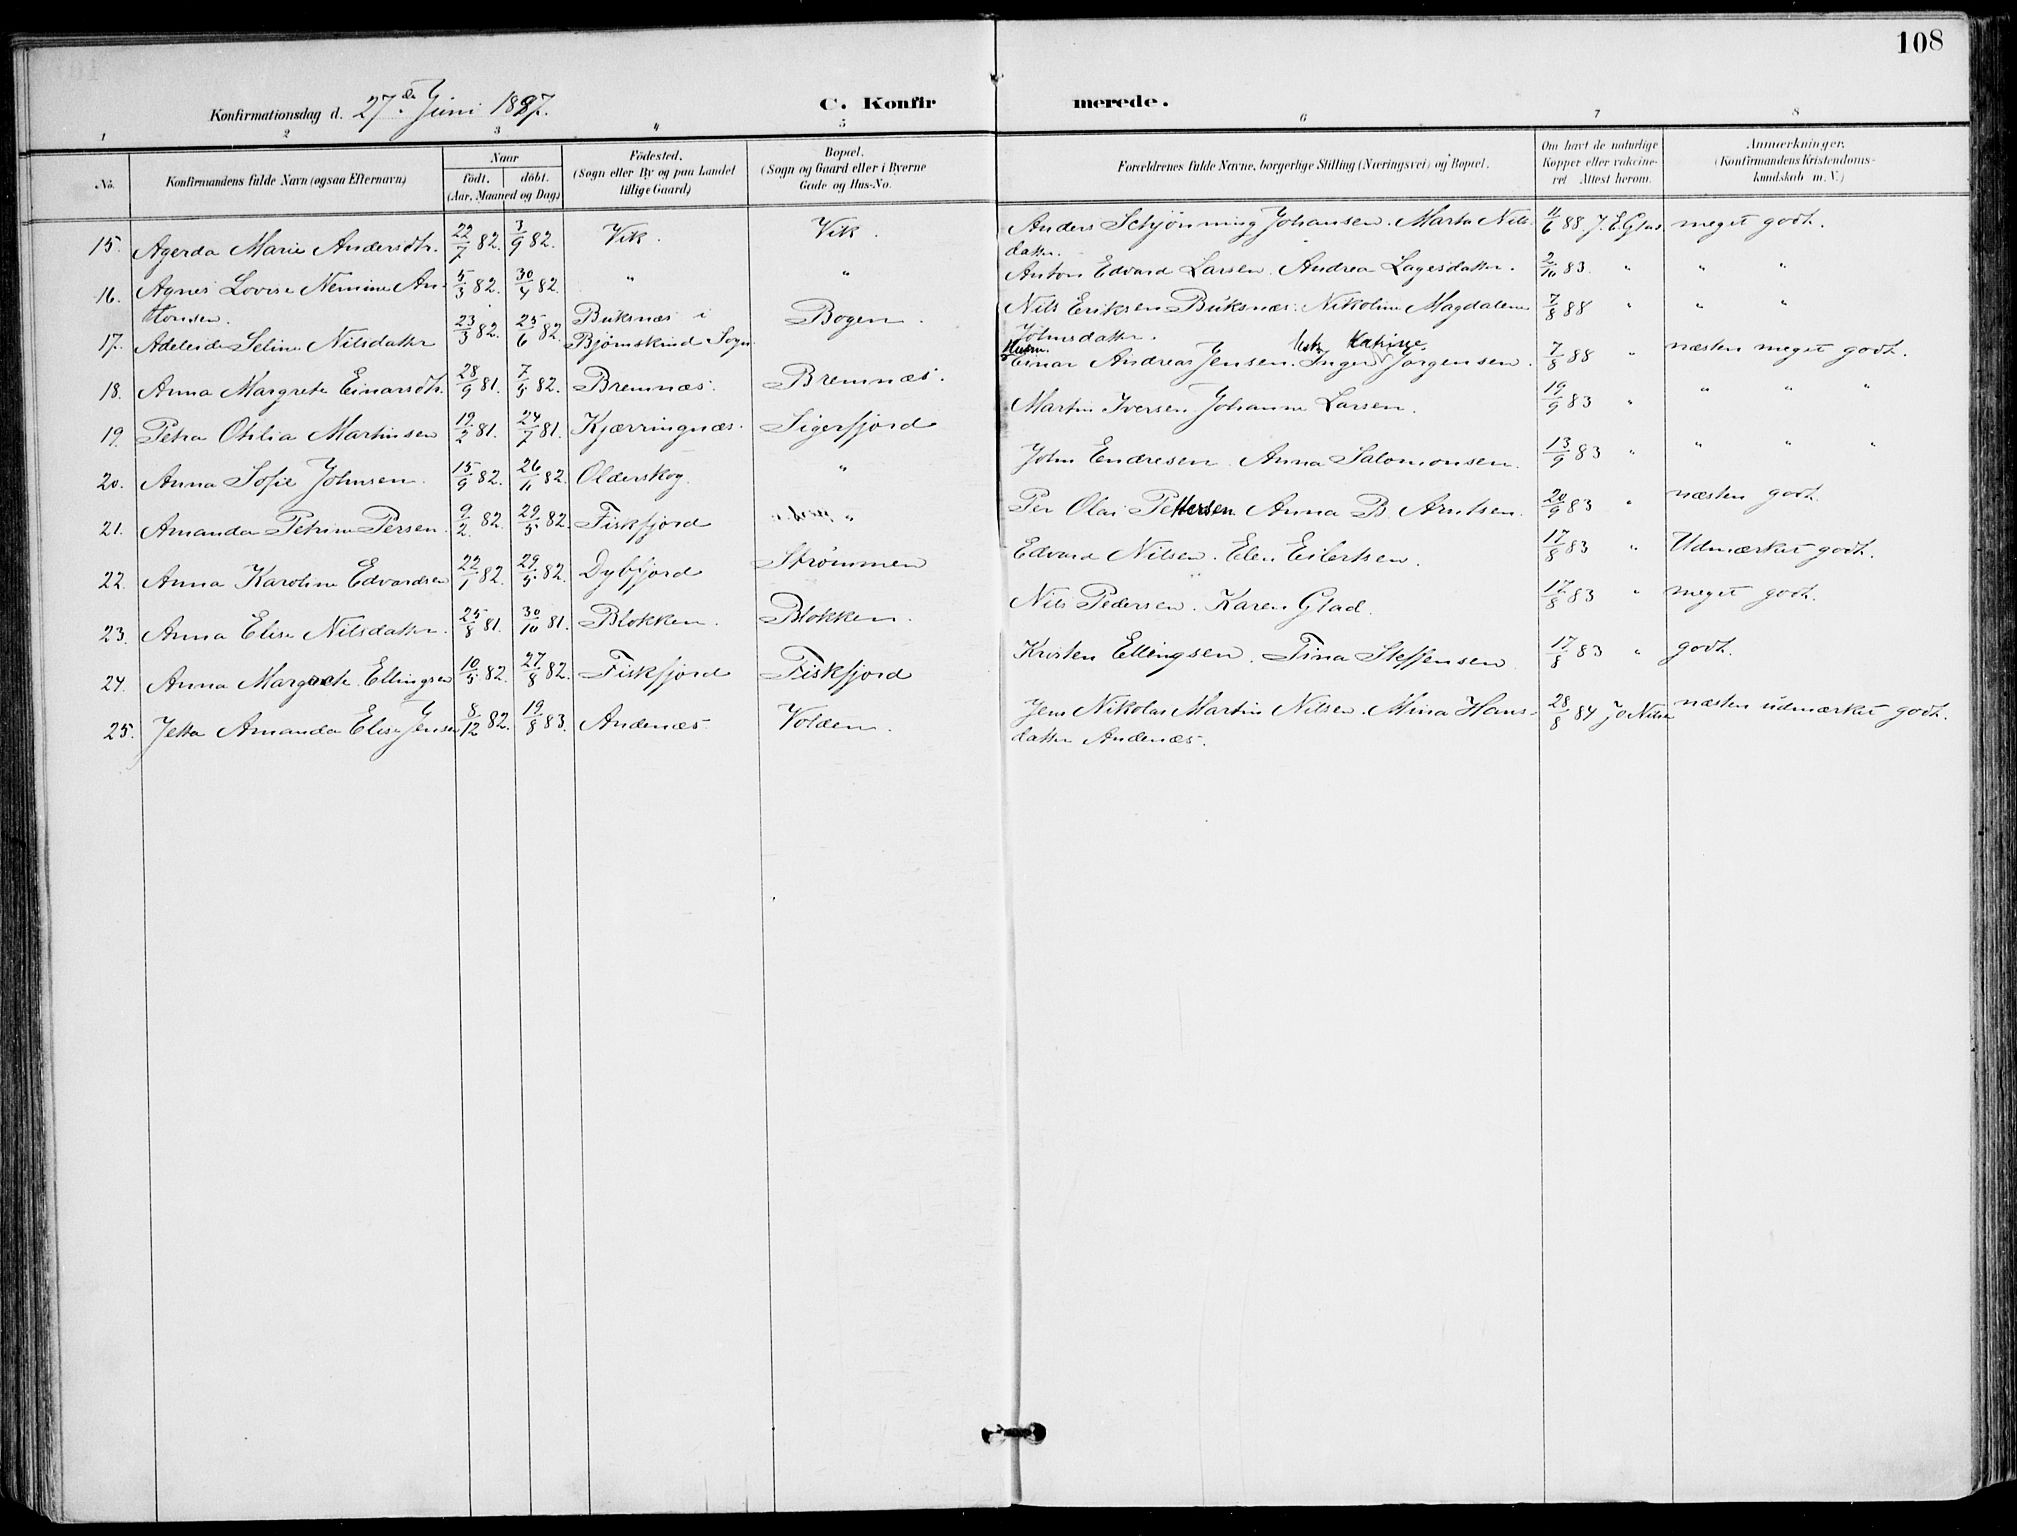 108
Konfirmationsdag d. 27de Juni 1897.
C. Konfirmerede.
1 2 3 4 5 6 7 8
No. Konfirmandens fulde Navn (ogsaa Efternavn) Naar født. døbt. (Aar, Maaned og Dag) Fødested. (Sogn eller By og paa Landet tillige Gaard) Bopæl. (Sogn og Gaard eller i Byerne Gade og Hus-No. Forældrenes fulde Navne, borgerlige Stilling (Næringsvei) og Bopæl. Om havt de naturlige Kopper eller vakcineret Attest herom. Anmerkninger. (Konfirmandens Kristendomskundskab m. V.)
15. Agerda Marie Andersdtr. 22/7 82. 3/9 82. Vik. Vik. Anders Schjønning Johansen. Marta Nilsdatter. 11/6 88. J. E. Glad meget godt.
16. Agnes Lovise Nemine Antonsen. 5/3 82. 30/4 82. " " Anton Edvard Larsen. Andrea Lagesdatter. 2/10 83. " " "
17. Adeleide Seline Nilsdatter 23/3 82. 25/6 82. Buksnæs i Bjørnskind Sogn. Bogen. Nils Eriksen Buksnæs. Nikoline Magdalene Johnsdatter. 7/8 88 " " "
18. Anna Margrete Einarsdtr. 28/9 81. 7/5 82. Bremnæs. Bremnæs. Einar Andreas Jensen. Inger Katrine Jørgensen. 7/8 88 " næsten meget godt.
19. Petra Otilia Martinsen 19/2 81. 24/7 81. Kjærringnæs. Sigerfjord Martin Iversen Johanna Larsen. 19/9 83 " " " "
20. Anna Sofie Johnsen. 15/9 82. 26/11 82. Olderskog. " John Endresen. Anna Salomonsen. 13/9 83 " " " "
21. Amanda Petrine Persen. 9/2 82. 29/5 82. Fiskfjord " Per Olai Pettersen Anna B. Arntsen. 20/9 83 " næsten godt
22. Anna Karoline Edvardsen 22/1 82. 29/5 82. Dybfjord Strømmen Edvard Nilsen. Elen Eilertsen. 17/8 83 " Udmærket godt.
23. Anna Elise Nilsdatter. 25/8 81. 30/10 81. Blokken. Blokken. Nils Pedersen. Karen Glad. 17/8 83 " meget godt.
24. Anna Margrete Ellingsen 10/5 82. 27/8 82. Fiskfjord Fiskfjord Kristen Ellingsen. Tina Steffensen 17/8 83 " godt.
25. Jetta Amanda Elise Jensen 8/12 82. 19/8 83. Andenæs. Volden. Jens Nikolai Martin Nilsen. Mina Hansdatter Andenæs. 28/8 84 Jo Nilsen næsten udmærket godt.